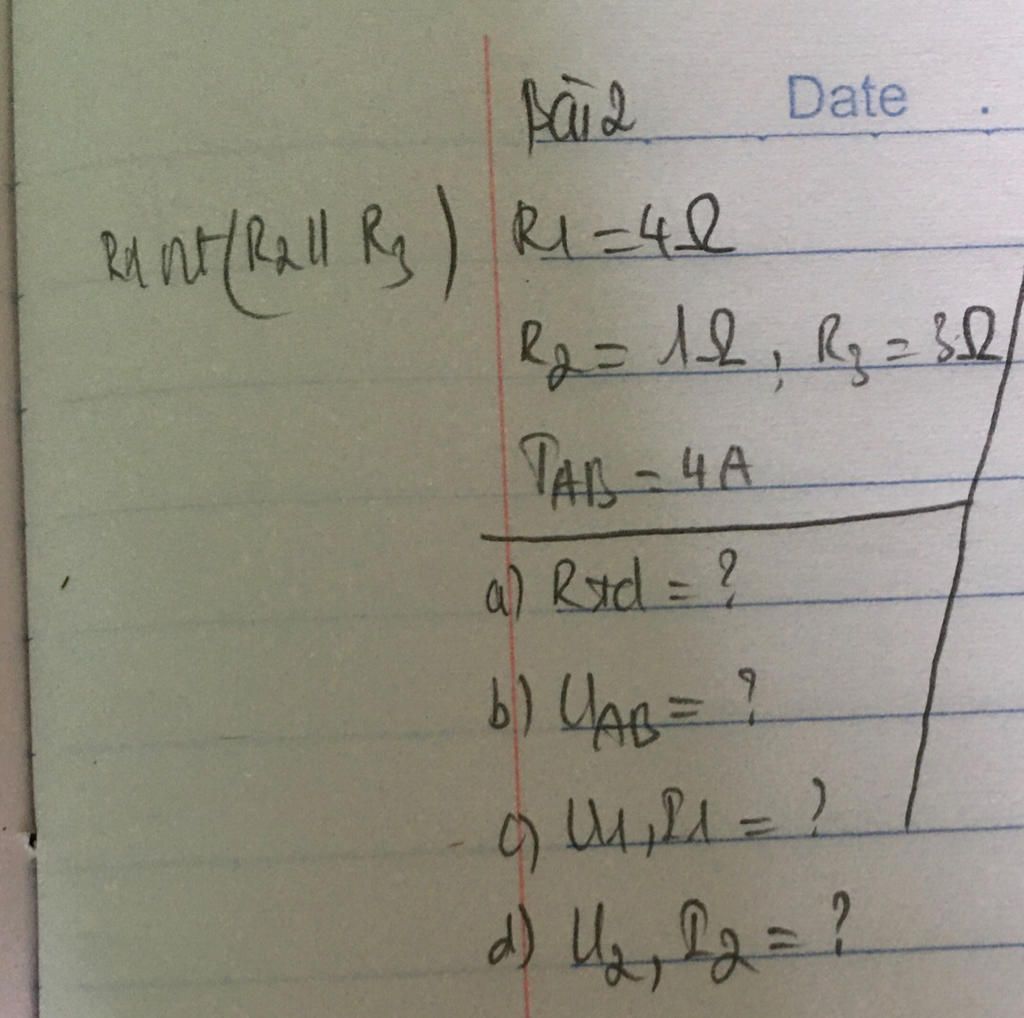 Bài 2 Date .
R1 nt (R2 || R3) R1 = 4Ω
R2 = 1Ω ; R3 = 3Ω
IAB = 4A
a) Rtd = ?
b) UAB = ?
c) U1, I1 = ?
d) U2, I2 = ?